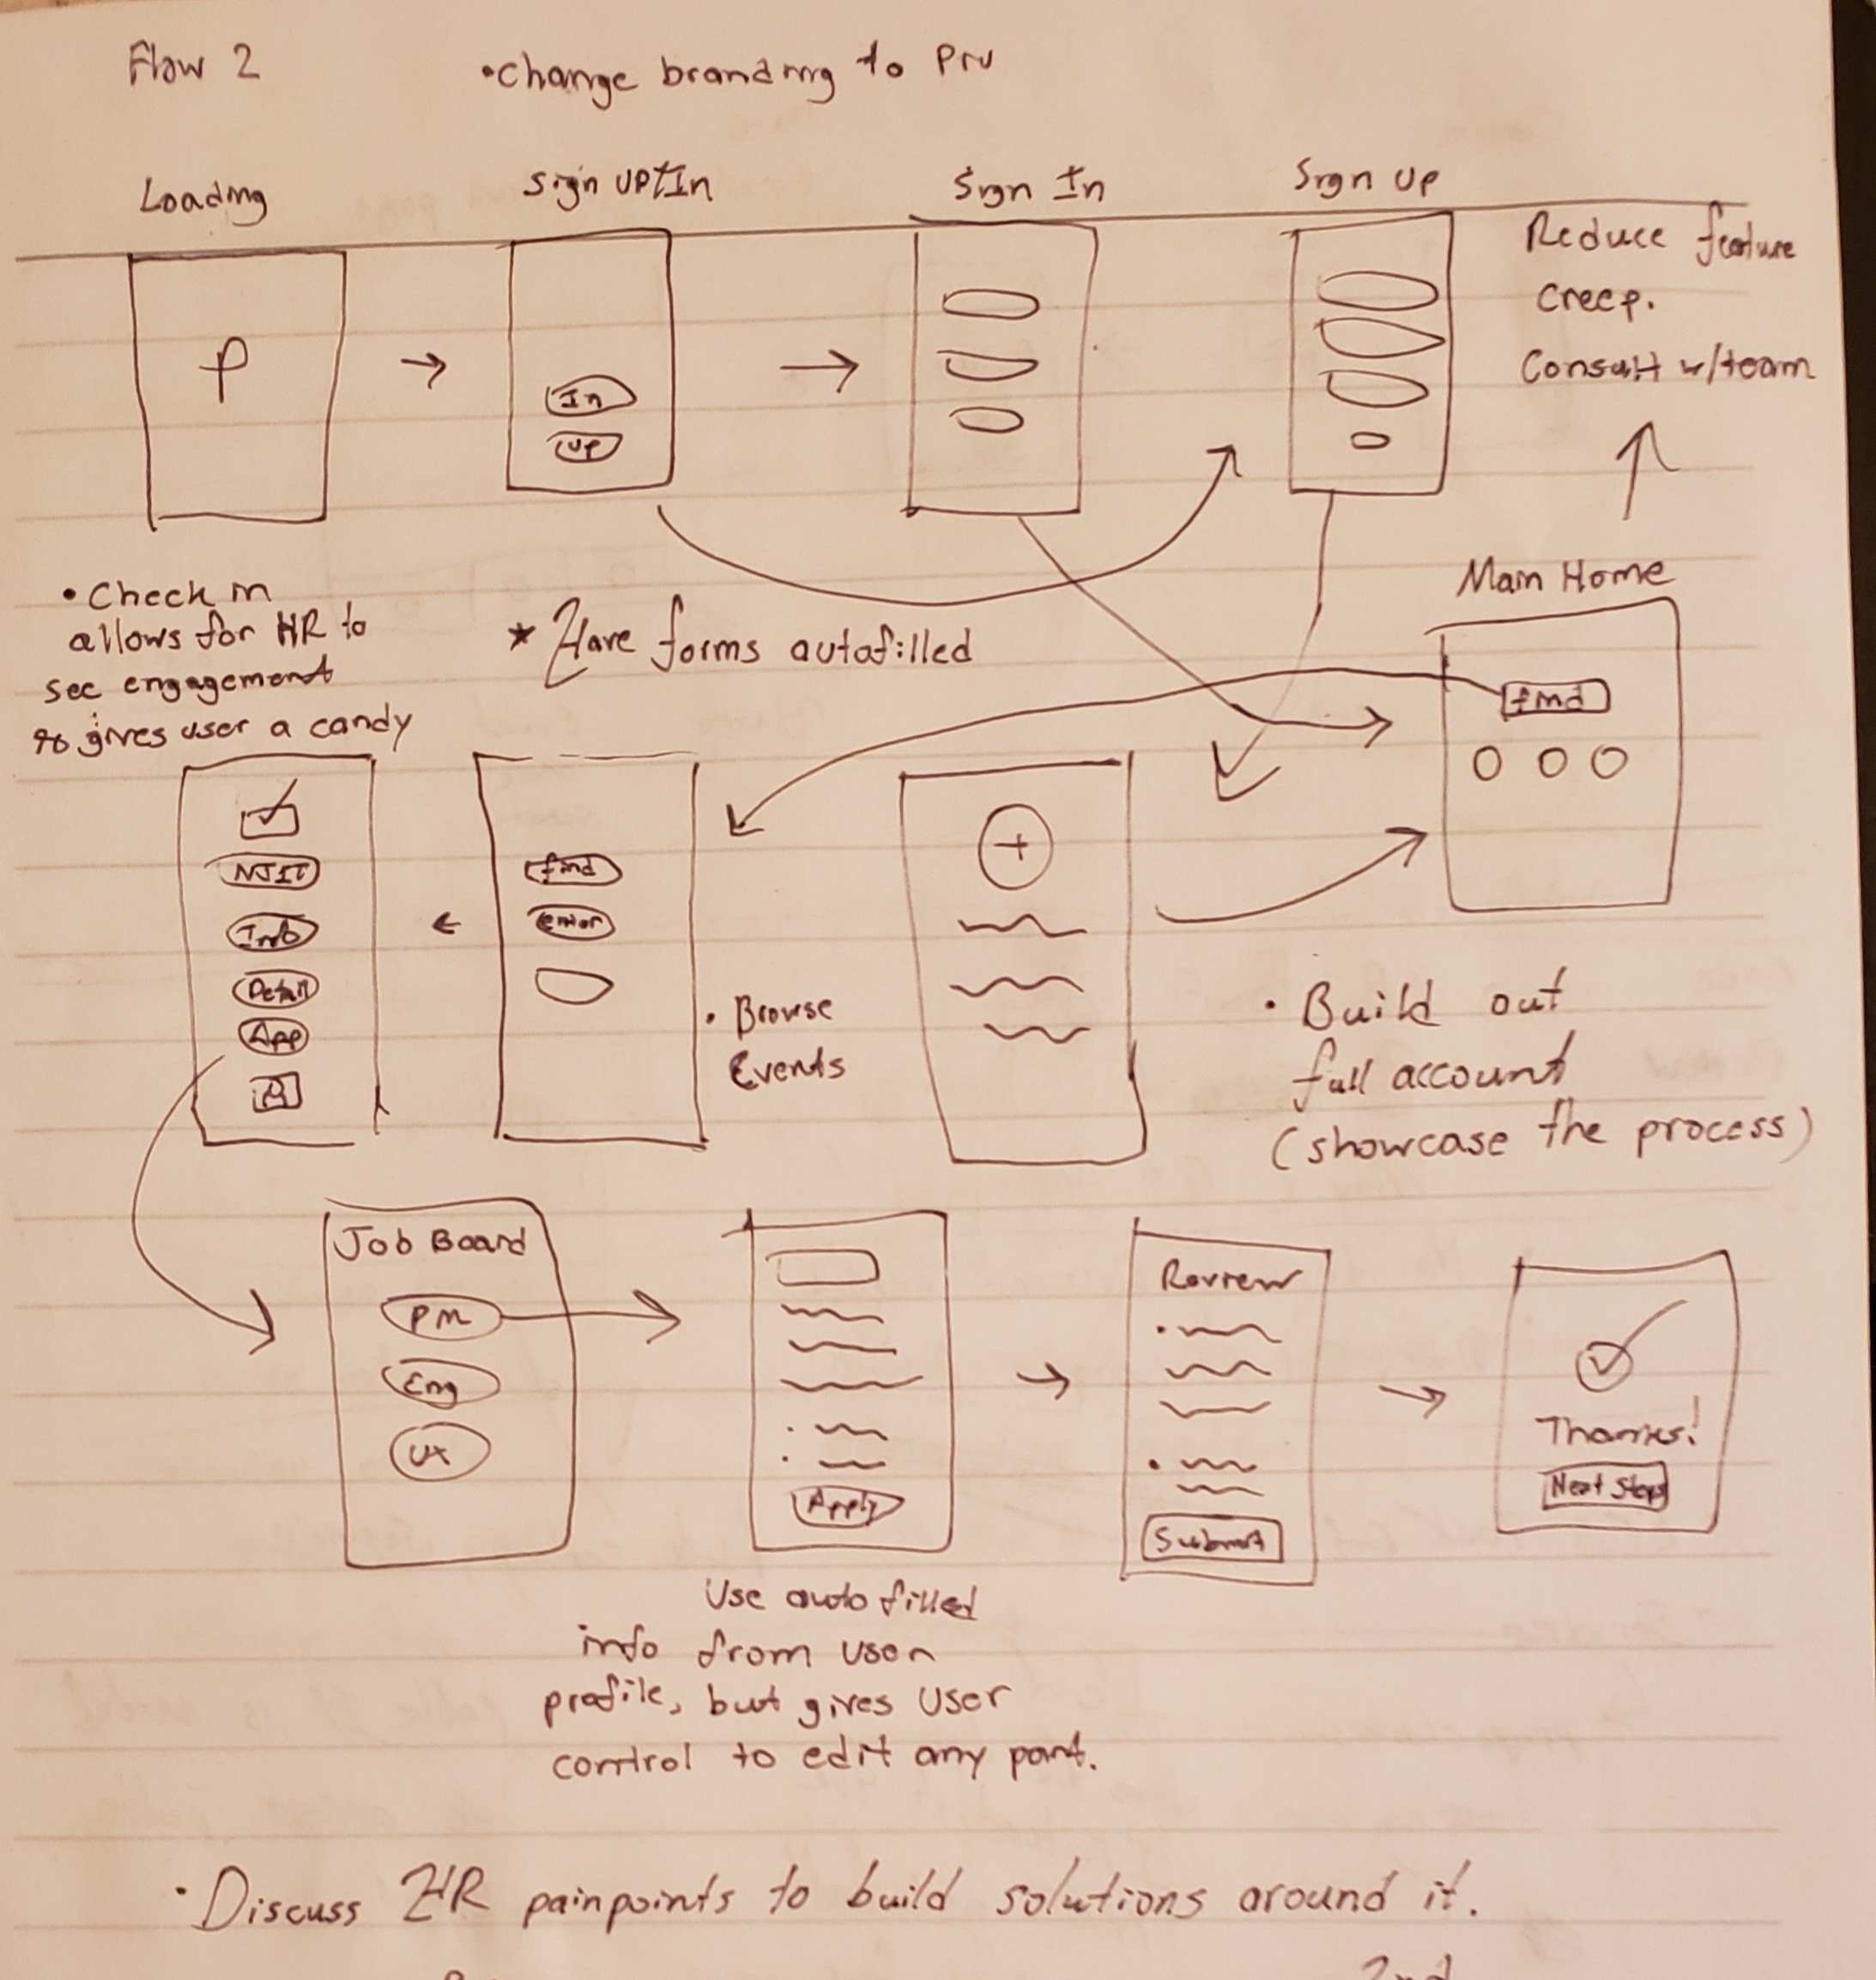 Flow 2
• Change branding to Pru
Loading
Sign UP/In
Sign In
Sign Up
P
In
Up
Reduce feature
Creep.
Consult w/team
• Check in
allows for HR to
see engagement
& gives user a candy
* Have forms autofilled
Main Home
find
NJIT
Info
Detail
App
find
enter
+
• Browse
Events
• Build out
full account
(showcase the process)
Job Board
PM
Eng
UX
Apply
Review
Submit
Thanks!
Next Steps
Use autofilled
info from user
profile, but gives user
control to edit any part.
• Discuss HR painpoints to build solutions around it.
2nd